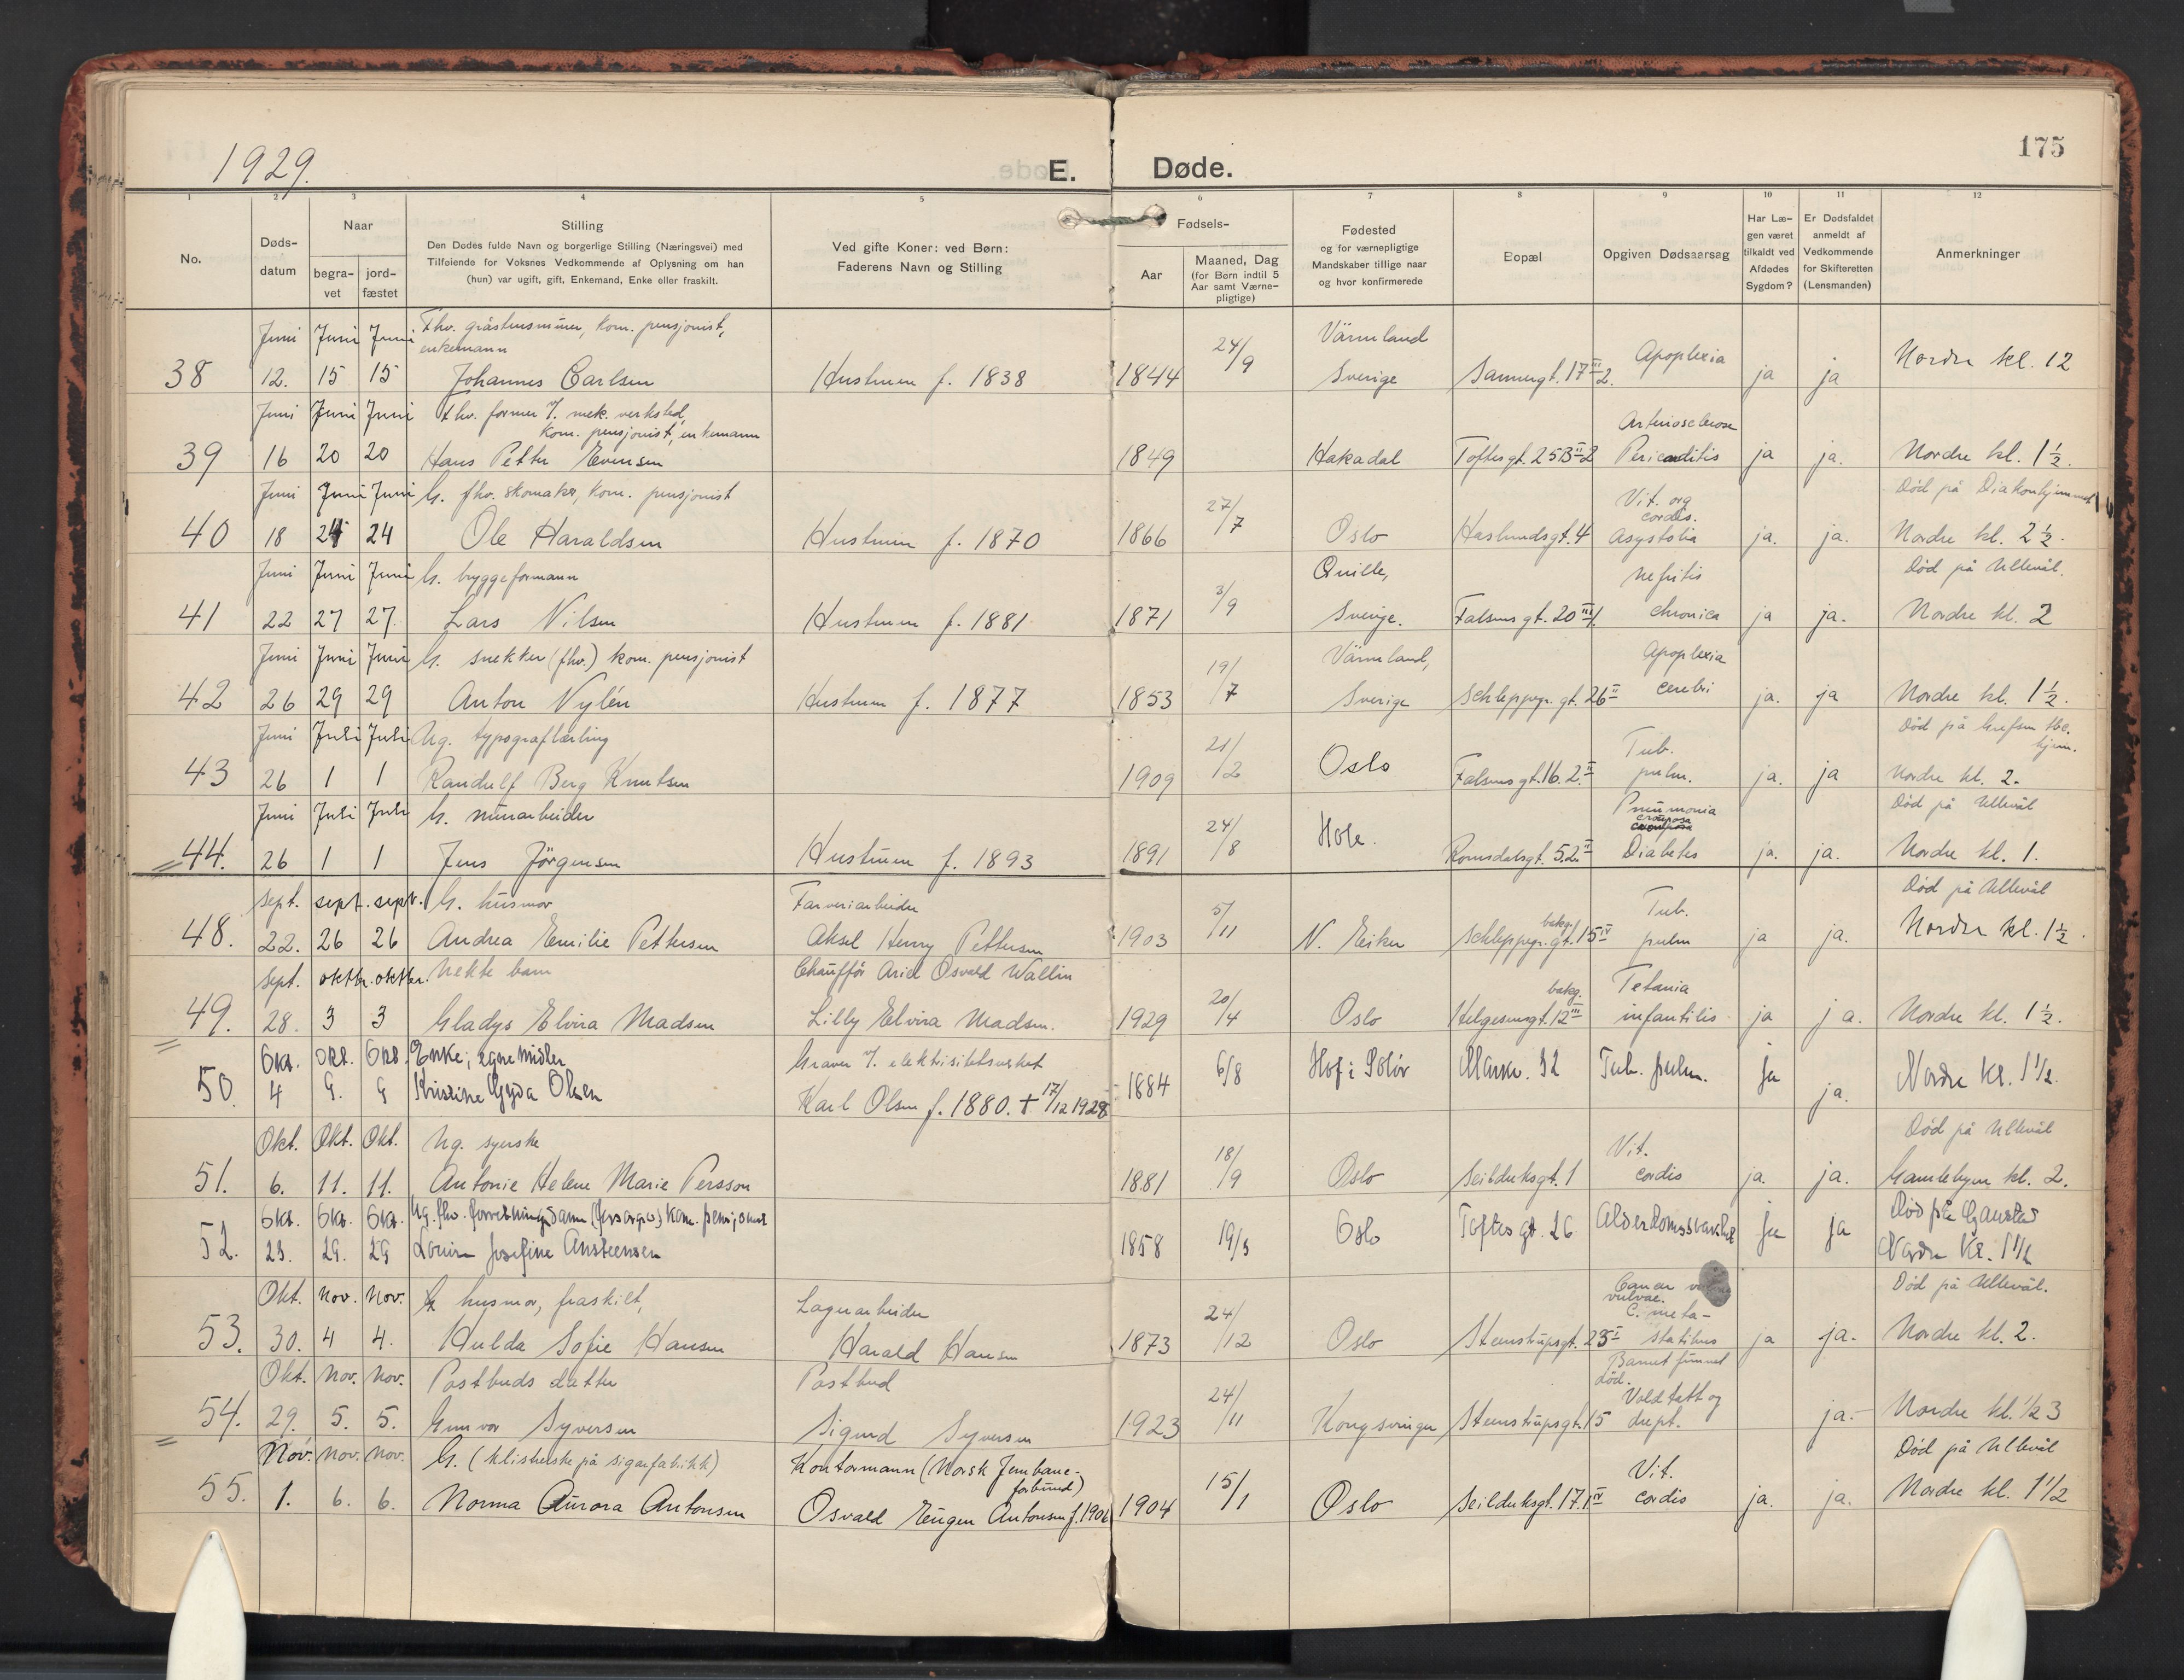 1929.
E. Døde.
175
1 2 3 4 5 6 7 8 9 10 11 12
No.
Døds-
datum
Naar
begra-
vet
jord-
fæstet
Stilling
Den Dødes fulde Navn og borgerlige Stilling (Næringsvei) med
Tilføiende for Voksnes Vedkommende af Oplysning om han
(hun) var ugift, gift, Enkemand, Enke eller fraskilt.
Ved gifte Koner: ved Børn:
Faderens Navn og Stilling
Fødsels-
Aar
Maaned, Dag
(for Børn indtil 5
Aar samt Værne-
pligtige)
Fødested
og for værnepligtige
Mandskaber tillige naar
og hvor konfirmerede
Bopæl
Opgiven Dødsaarsag
Har Læ-
gen været
tilkaldt ved
Afdødes
Sygdom?
Er Dødsfaldet
anmeldt af
Vedkommende
for Skifteretten
(Lensmanden)
Anmerkninger
Juni Juni Juni Fhv. gråstensminer, kom. pensjonist,
enkemann 24/9 Värmland
38 12. 15 15 Johannes Carlsen Hustruen f. 1838 1844 Sverige Sannergt. 17 III 2. Apoplexia ja ja Nordre kl. 12
Juni Juni Juni fhv. former V. mek. verksted,
kom. pensjonist, enkemann Arteriosclerose
39 16 20 20 Hans Petter Evensen 1849 Hakadal Toftesgt. 25B II 2 Pericarditis ja ja. Nordre kl. 1 1/2.
Juni Juni Juni G. fhv. skomaker, kom. pensjonist 27/7 Vit. org. cordis. Död på Diakonhjemmet
40 18 24 24 Ole Haraldsen Hustruen f. 1870 1866 Oslo Haslundsgt. 4 asystolia ja. ja. Nordre kl. 2 1/2.
Juni Juni Juni G. bryggeformann 3/9 Quille, Nefritis Död på Ullevål.
41 22 27 27. Lars Nilsen Hustruen f. 1881 1871 Sverige. Falsensgt. 20 III chronica ja ja. Nordre kl. 2
Juni Juni Juni G. snekker (fhv.) kom. pensjonist 19/7 Värmland, Apoplexia
42 26 29 29 Anton Nylén Hustruen f. 1877 1853 Sverige Schleppegr. gt. 26 II cerebri ja. ja Nordre kl. 1 1/2.
Juni Juli Juli Ug. typograflærling 21/2 Tub. Död på Grefsen tbc. hjem.
43 26 1 1 Randulf Berg Knutsen 1909 Oslo Falsensgt. 16. 2 II pulm. ja. ja Nordre kl. 2.
Juni Juli Juli G. murarbeider 24/8 Pneumonia crouposa Död på Ullevål
44. 26 1 1 Jens Jörgensen Hustruen f. 1893 1891 Hole. Romsdalsgt. 5. 2 II Diabetes ja. ja. Nordre kl. 1.
Sept. sept. sept. G. husmor Farveriarbeider 5/11 bakg. Tub. Död på Ullevål
48. 22. 26 26 Andrea Emilie Pettersen Aksel Henry Pettersen 1903 N. Eiker Schleppegr. gt. 15 IV pulm ja ja. Nordre kl. 1 1/2.
Sept. oktbr. oktbr. Uekte barn Chaufför Ariel Osvald Wallin 20/4 bakg. Tetania
49. 28. 3 3 Gladys Elvira Madsen Lilly Elvira Madsen. 1929 Oslo Helgesensgt. 12 III infantilis ja ja. Nordre kl. 1 1/2.
Okt. Okt. Okt. Enke; egne midler Graver V. elektrisitetsverket
50. 4 9. 9 Kristine Gyda Olsen Karl Olsen f. 1880. + 17/12 1928 1884 6/8 Hof i Solör Markv. 32 Tub. pulm. ja ja. Nordre Kl. 1 1/2
Okt. Okt. Okt. Ug. syerske 18/9 Vit. Död på Ullevål
51. 6. 11. 11. Antonie Helene Marie Persson 1881 Oslo Seilduksgt. 1 cordis ja. ja. Gamlebyen kl. 2.
Okt. Okt. Okt. Ug. fhv. forretningsdame (forsorgs) kom. pensjonist Död på Gaustad
52. 23. 29. 29 Louise Josefine Ansteensen 1858 19/3 Oslo Toftesgt. 26 Alderdomssvakhet ja ja Nordre Kl. 1 1/2
Okt. Nov. Nov. G husmor, fraskilt, Lagerarbeider 24/12 Cancer vulvae. C. meta- Död på Ullevål.
53. 30. 4 4. Hulda Sofie Hansen Harald Hansen 1873 Oslo Steenstrupsgt. 23 I statibus ja ja. Nordre kl. 2.
Okt. Nov. Nov. Postbuds datter Postbud 24/11 Barnet funnet död. Voldtatt og
54. 29. 5. 5. Gunvor Syversen Sigurd Syversen 1923 Kongsvinger Steenstrupsgt. 15 drept. ja. Nordre kl. 1/2 3
Nov. Nov. Nov. G. (klisterske på sigarfabrikk) Kontormann (Norsk Jernbane-
forbund) 15/1 Vit. Död på Ullevål
55. 1. 6. 6. Norma Aurora Antonsen Osvald Eugen Antonsen f. 1906 1904 Oslo Seilduksgt. 17. 1 IV cordis ja. ja. Nordre kl. 1 1/2